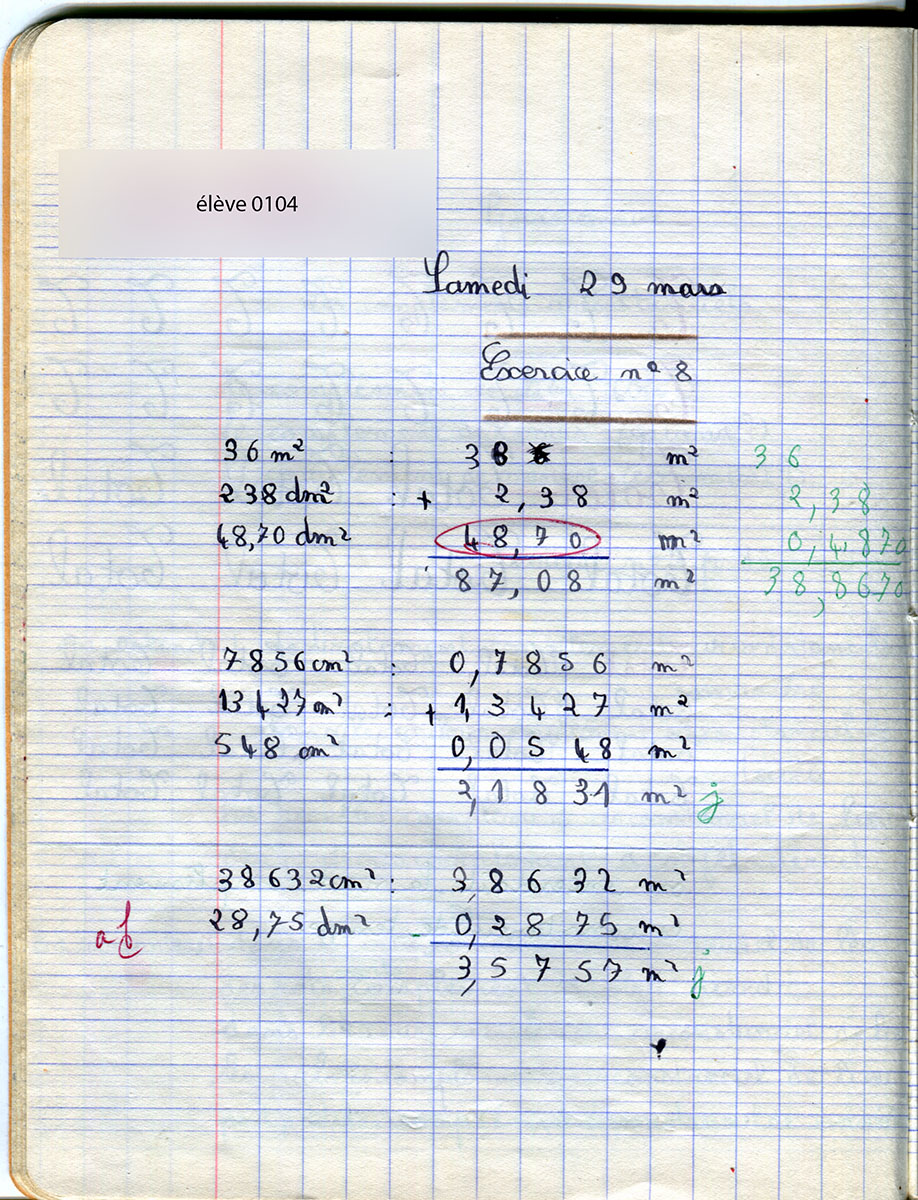 élève 0104
Samedi 29 mars
Exercice n° 8
36 m² : 36 m² 36
238 dm² : + 2,38 m² 2,38
48,70 dm² 48,70 m² 0,4870
87,08 m² 38,8670
7856 cm² : 0,7856 m²
13427 cm² : + 1,3427 m²
548 cm² 0,0548 m²
2,1831 m² j
38632 cm² : 3,8632 m²
28,75 dm² - 0,2875 m²
3,5757 m² j